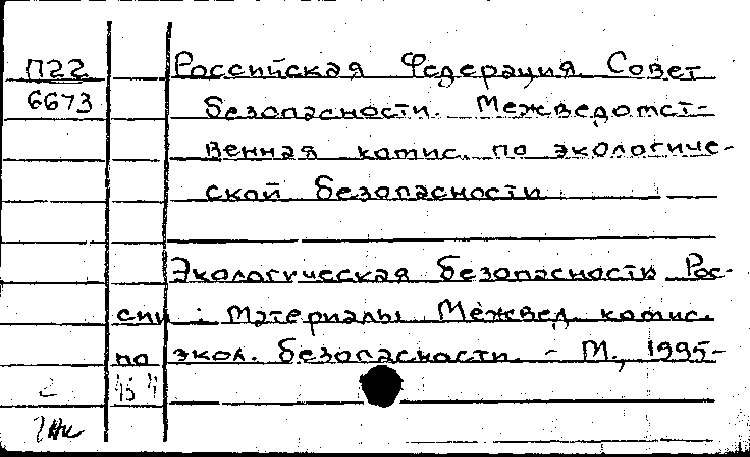 П22
6673
Российская Федерация. Совет
безопасности. Межведомст-
венная комис. по экологиче-
ской безопасности
Экологическая безопасность Рос-
сии : материалы Межвед. комис.
по экол. безопасности. - М., 1995-